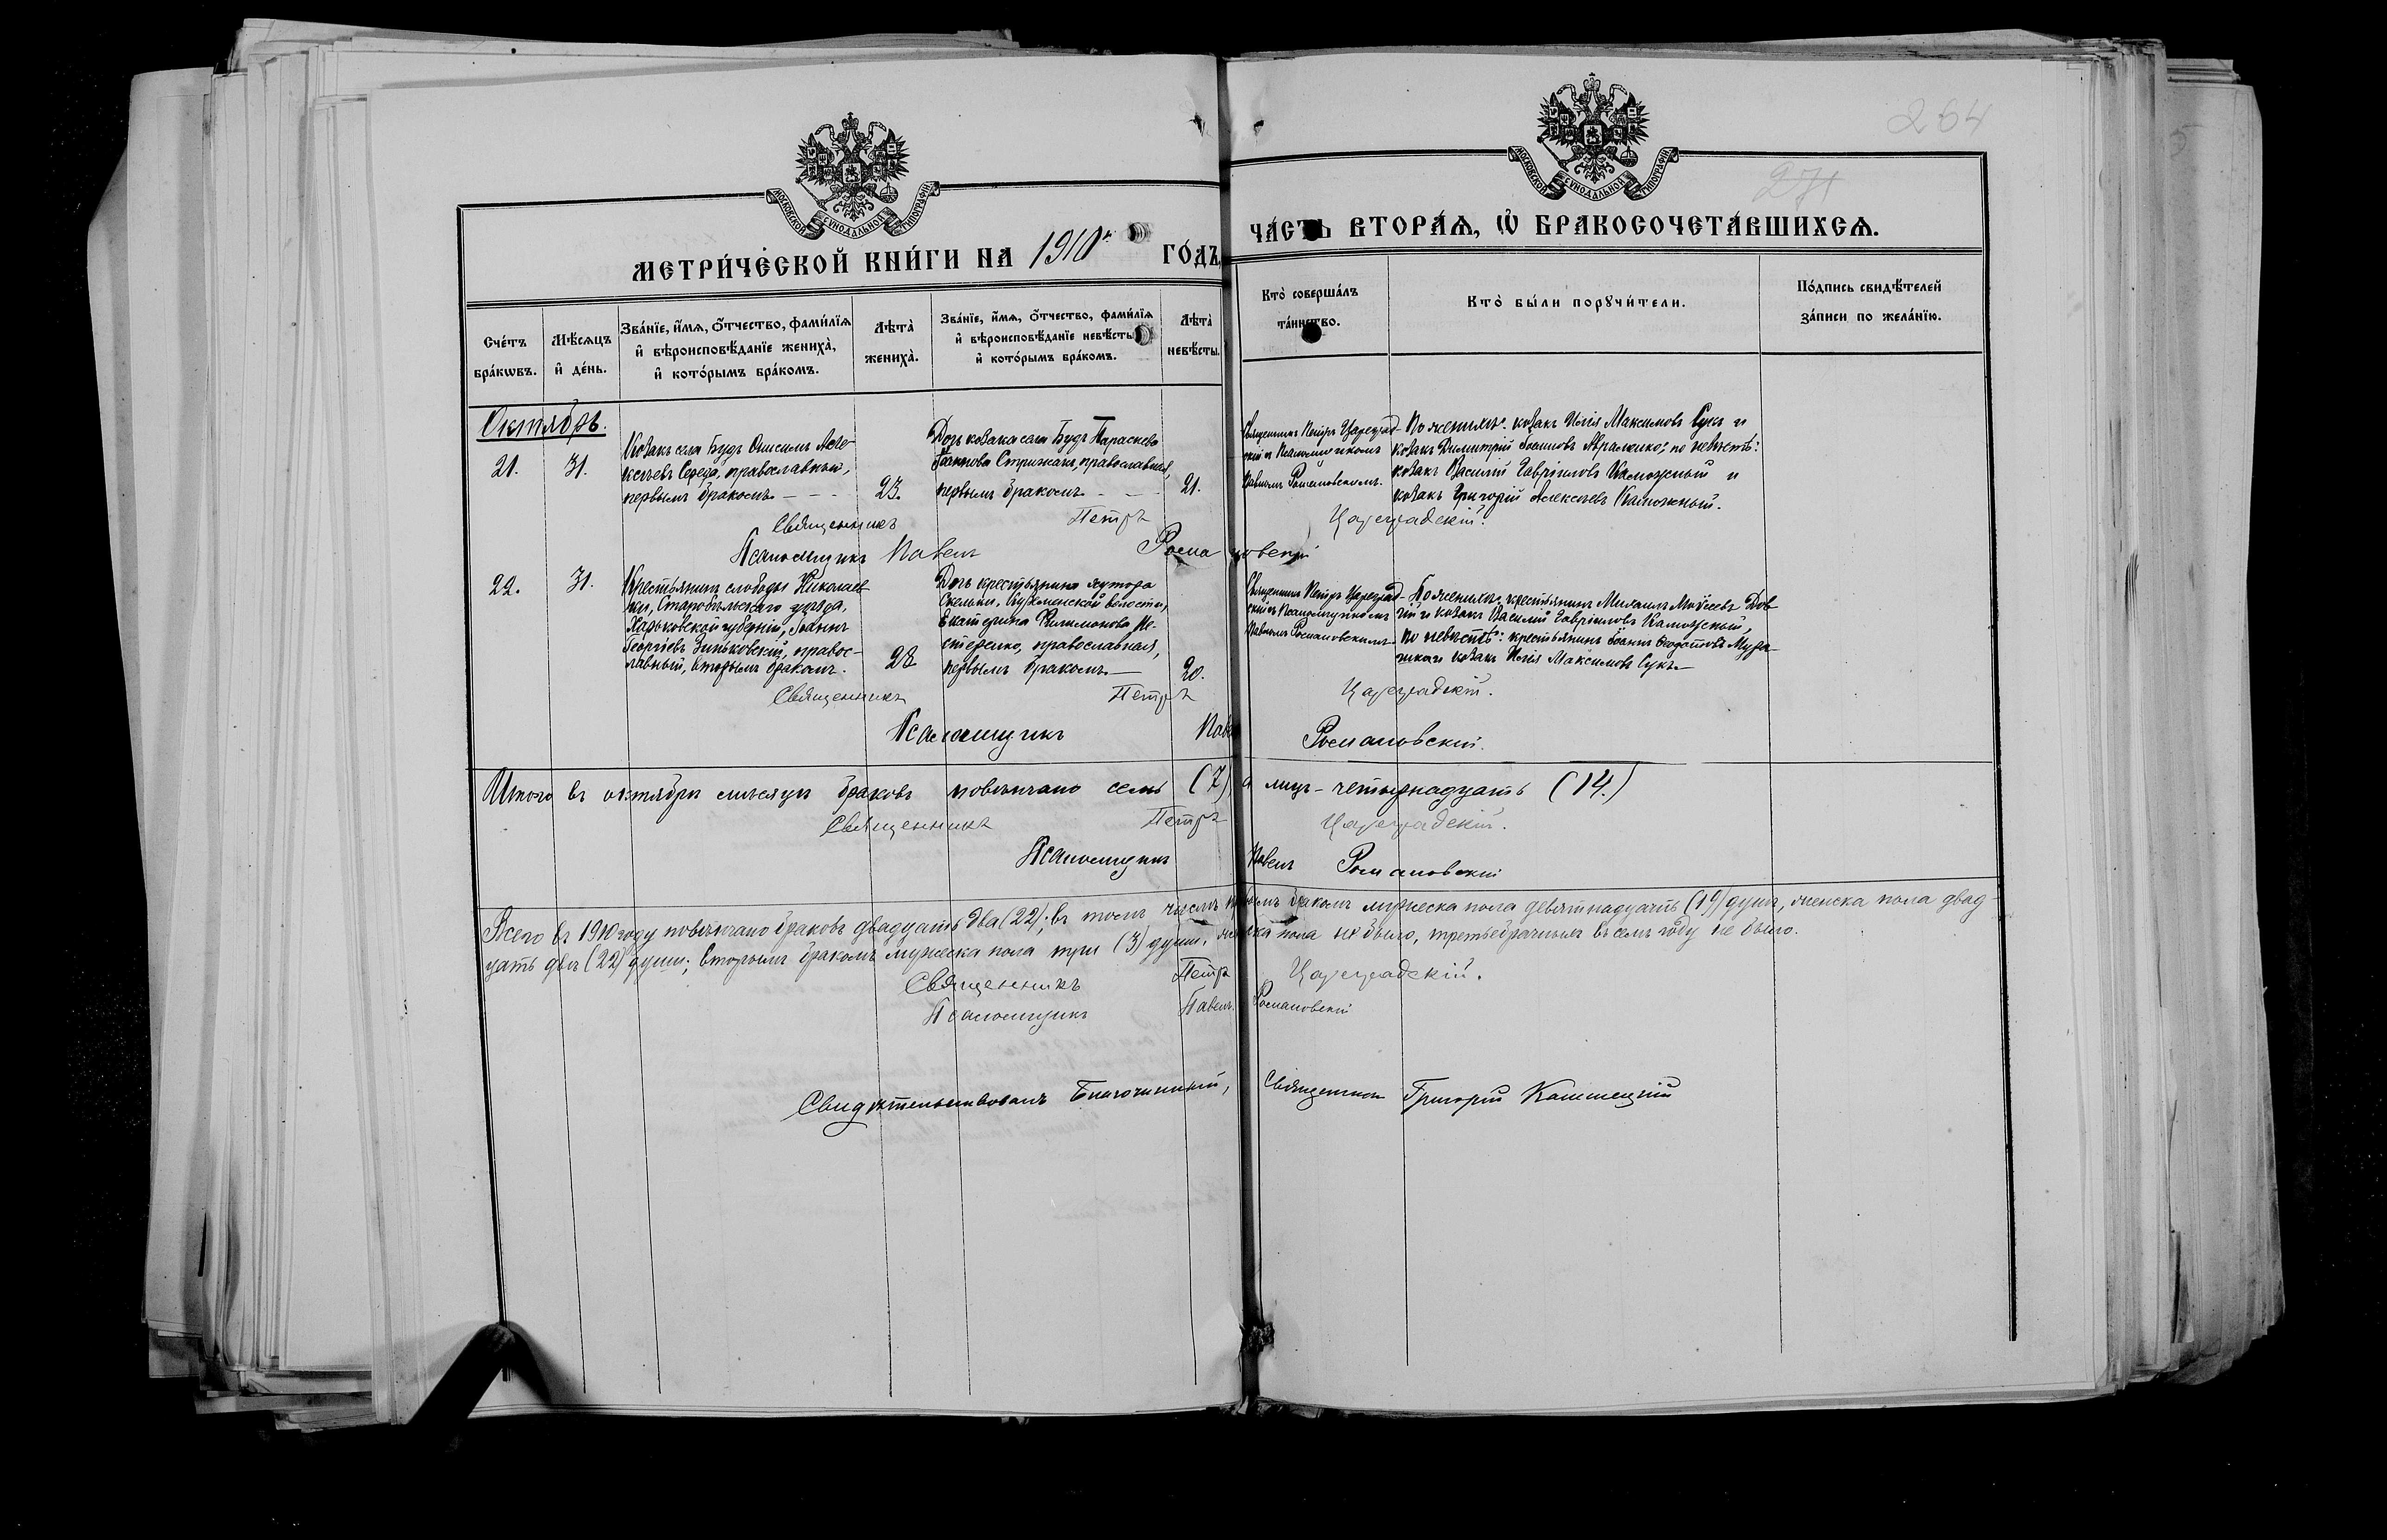 264
271
МОСКОВСКОЙ СѴНОДАЛЬНОЙ ТИПОГРАФІИ
МОСКОВСКОЙ СѴНОДАЛЬНОЙ ТИПОГРАФІИ
МЕТРИ́ЧЕСКОЙ КНИ́ГИ НА 1910 г. ГО́ДЪ,
ЧА́СТЬ ВТОРА́Ѧ, Ѽ БРАКОСОЧЕТА́ВШИХСѦ.
Сче́тъ бра́кѡвъ.
Мѣ́сѧцъ и҆ де́нь.
Зва́нїе, и҆́мѧ, ѻ҆́тчество, фами́лїѧ
и҆ вѣроисповѣ́данїе жениха̀,
и҆ кото́рымъ бра́комъ.
Лѣта̀ жениха̀.
Зва́нїе, и҆́мѧ, ѻ҆́тчество, фами́лїѧ
и҆ вѣроисповѣ́данїе невѣ́сты
и҆ кото́рымъ бра́комъ.
Лѣта̀ невѣ́сты.
Кто̀ соверша́лъ
та́инство.
Кто̀ бы́ли порꙋчи́тели.
По́дпись свидѣ́телей
за́писи по жела́нїю.
Октябрь.
21.
31.
Козакъ села Будъ Онисимъ Але-
ксѣевъ Середа, православный,
первымъ бракомъ
23.
Дочь козака села Будъ Параскева
Іоаннова Стрижакъ, православная,
первымъ бракомъ
21.
Священникъ Петръ Цареград-
скій съ Псаломщикомъ
Павломъ Романовскимъ.
По женихѣ: козакъ Илія Максимовъ Сукъ и
козакъ Димитрій Іоанновъ Авраменко; по невѣстѣ:
козакъ Василій Гавріиловъ Каможный и
козакъ Григорій Алексѣевъ Каможный.
Священникъ Петръ Цареградскій.
Псаломщикъ Павелъ Романовскій
22.
31.
Крестьянинъ слободы Николаев-
ки, Старобѣльскаго уѣзда,
Харьковской губерніи, Іоаннъ
Георгіевъ Зиньковскій, правос-
лавный, вторымъ бракомъ.
28
Дочь крестьянина хутора
Скельки, волости,
Екатерина Филимонова Не-
стеренко, православная,
первымъ бракомъ
20.
Священникъ Петръ Цареград-
скій съ Псаломщикомъ
Павломъ Романовскимъ
По женихѣ: крестьянинъ Михаилъ Моѵсеевъ Дов-
гій и козакъ Василій Гавріиловъ Каможный,
по невѣстѣ: крестьянинъ Іоаннъ
и козакъ Илія Максимовъ Сукъ
Священникъ Петръ Цареградскій.
Псаломщикъ Павелъ Романовскій.
Итого въ октябрѣ мѣсяцѣ браковъ повѣнчано семь (7) а лицъ - четырнадцать (14.)
Священникъ Петръ Цареградскій.
Псаломщикъ Павелъ Романовскій
Всего въ 1910 году повѣнчано браковъ двадцать два (22); въ томъ числѣ первымъ бракомъ мужеска пола девятнадцать (19) душъ, женска пола двад-
цать двѣ (22) души; вторымъ бракомъ мужеска пола три (3) души, женска пола не было, третьебрачныхъ въ семъ году не было.
Священникъ Петръ Цареградскій.
Псаломщикъ Павелъ Романовскій
Свидѣтельствовалъ Благочинный, Священникъ Григорій